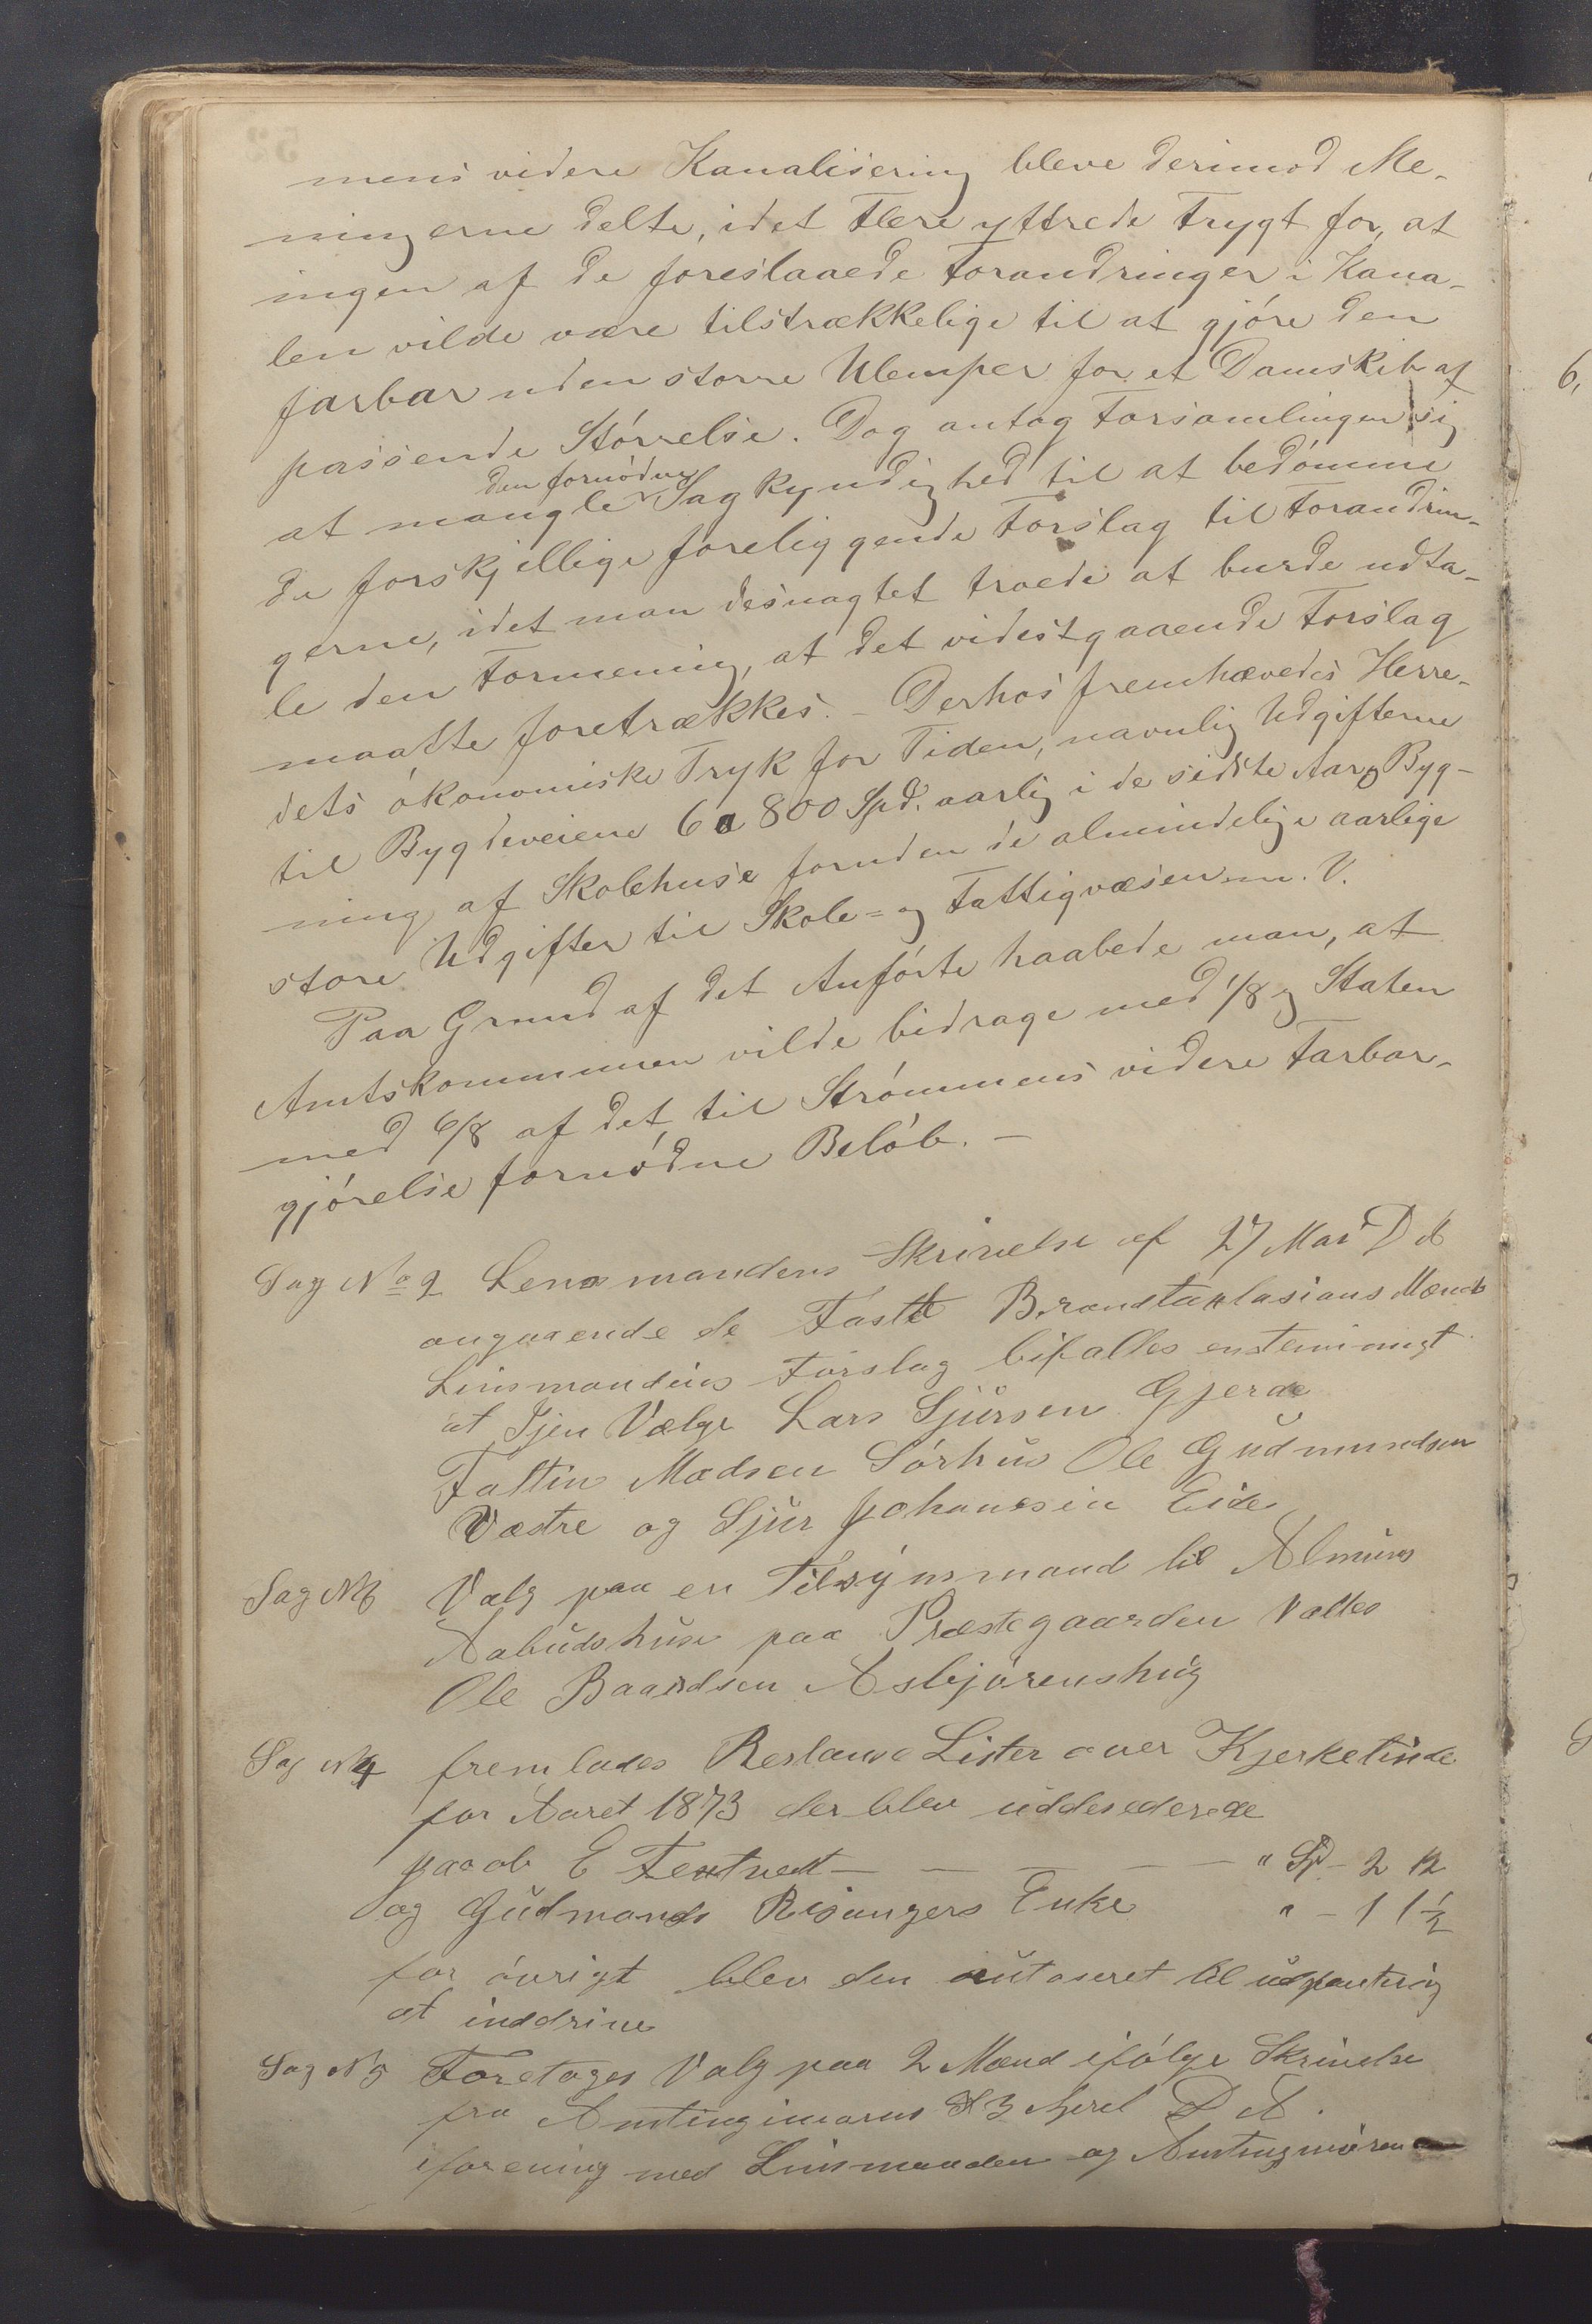 mens videre Kanalisering bleve derimod Me-
ningerne delte, idet Flere yttrede Frygt for, at
ingen af de foreslaaede Forandringer i Kana-
len vilde være tilstrækkelige til at gjöre den
farbar uden storre Ulemper for et Damskib af
passende Störrelse. Dog antog Forsamlingen sig
den fornödne
at mangle Sagkyndighed til at bedömme
de forskjellige foreliggende Forslag til Forandrin-
gerne, idet man desuagtet troede at burde udta-
le den Formening, at det videstgaaende Forslag
maatte foretrækkes. - Derhos fremhævedes Herre-
dets ökonomiske Tryk for Tiden, navnlig Udgifterne
til Bygdeveiene 6 a 800 Spd. aarlig i de sidste Aar og Byg-
ning af Skolehuse foruden de almindelige aarlige
store Udgifter til Skole= og Fattigvæsen m. V.
Paa Grund af det Anförte haabede man, at
Amtskommunen vilde bidrage med 1/8 og Staten
med 6/8 af det til Strömmens videre Farbar-
gjörelse fornödne Belöb. -
Sag No 2 Lensmandens Skrivelse af 27 Mar D A
angaaende de Faste Brandtaxlasions Mænd
Linsmandens Forslag bifalles enstemmigt
at Gjen Vælge Lars Sjursen Gjerde
Faltin Madsen Sörhus Ole Gudmundsen
Væstre og Sjur Johannesen Eide
Sag N 3 Valg paa en Tilsynsmand til Almues
Aabudshuse paa Præstegaarden Valtes
Ole Baardsen Asbjörenshug
Sag N 4 fremlades Restance Lister over Kjerketinde
for Aaret 1873 der blev uddesederede
paa ob E Textvedt - - - - " Spd - 2 12
og Gudmands Risangers Enke " - 1 1 1/2
for övrigt blev den autoseret til udpanting
at inddrive
Sag N 5 Foretages Valg paa 2 Mænd ifölge Skrivelse
fra Amtinginiørens 23 Aprel D A.
iforening med Linsmanden og Amtingniøren